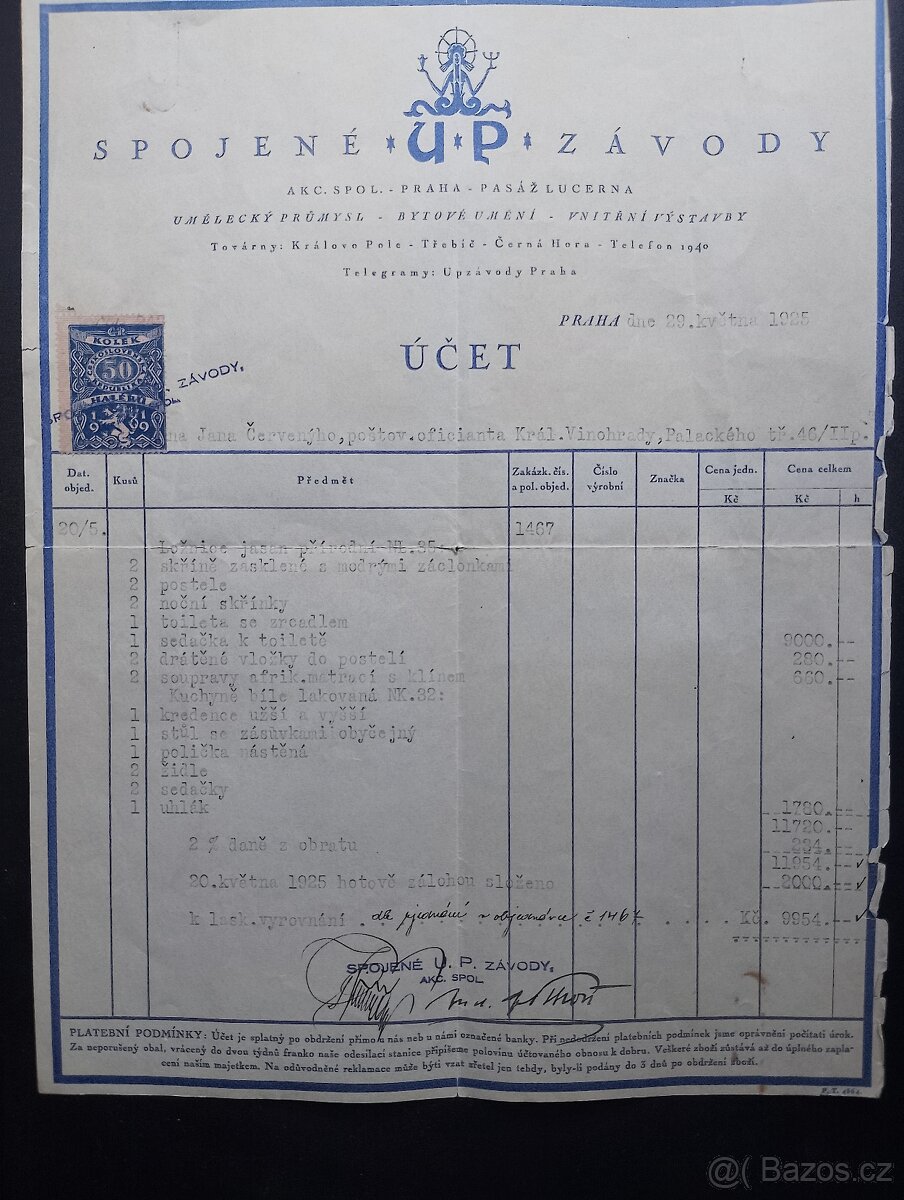 SPOJENÉ U·P ZÁVODY
AKC. SPOL. - PRAHA - PASÁŽ LUCERNA
UMĚLECKÝ PRŮMYSL - BYTOVÉ UMĚNÍ - VNITŘNÍ VÝSTAVBY
Továrny: Královo Pole - Třebíč - Černá Hora - Telefon 1940
Telegramy: Upzávody Praha
PRAHA dne 29.května 1925
ÚČET
KOLEK
50
HALÉŘŮ
1919
ZÁVODY,
na Jana Červenýho,poštov.oficianta Král.Vinohrady,Palackého tř.46/IIp.
Dat. objed. Kusů Předmět Zakázk. čís. a pol. objed. Číslo výrobní Značka Cena jedn. Kč Cena celkem Kč h
20/5. 1467
Ložnice jasan přírodní NL.35:
2 skříně zasklené s modrými záclonkami
2 postele
2 noční skřínky
1 toileta se zrcadlem
1 sedačka k toiletě 9000.--
2 drátěné vložky do postelí 280.--
2 soupravy afrik.matrací s klínem 660.--
Kuchyně bíle lakovaná NK.32:
1 kredence užší a vyšší
1 stůl se zásuvkami obyčejný
1 polička nástěná
2 židle
2 sedačky
1 uhlák 1780.--
11720.--
2 % daně z obratu 234.--
11954.--
20.května 1925 hotově zálohou složeno 2000.--
k lask.vyrovnání dle ujednání v objednávce č 1467 Kč. 9954.--
SPOJENÉ U. P. ZÁVODY,
AKC. SPOL.
PLATEBNÍ PODMÍNKY: Účet je splatný po obdržení přímo u nás neb u námi označené banky. Při nedodržení platebních podmínek jsme oprávnění počítati úrok.
Za neporušený obal, vrácený do dvou týdnů franko naše odesilací stanice připíšeme polovinu účtovaného obnosu k dobru. Veškeré zboží zůstává až do úplného zapla-
cení naším majetkem. Na odůvodněné reklamace může býti vzat zřetel jen tehdy, byly-li podány do 3 dnů po obdržení zboží.
@( Bazos.cz